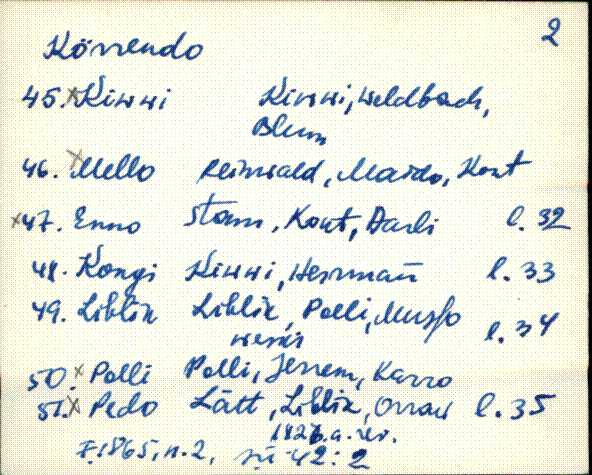 2
Kõrrendo
45. x Kiwwi Kiwwi, Weldbach,
Blum
46. x Mello Reinwald, Maido, Kont
x 47. Enno Stam, Kont, Darli l. 32
48. Kongi Kiwwi, Herrman̄ l. 33
49. Liblik Liblik, Polli, l. 34
50. x Polli Polli, Jerrem, Karro
51. x Pedo Lätt, Liblik, Orraw l. 35
1826. a. rev.
F. 1865, n. 2, 42:2